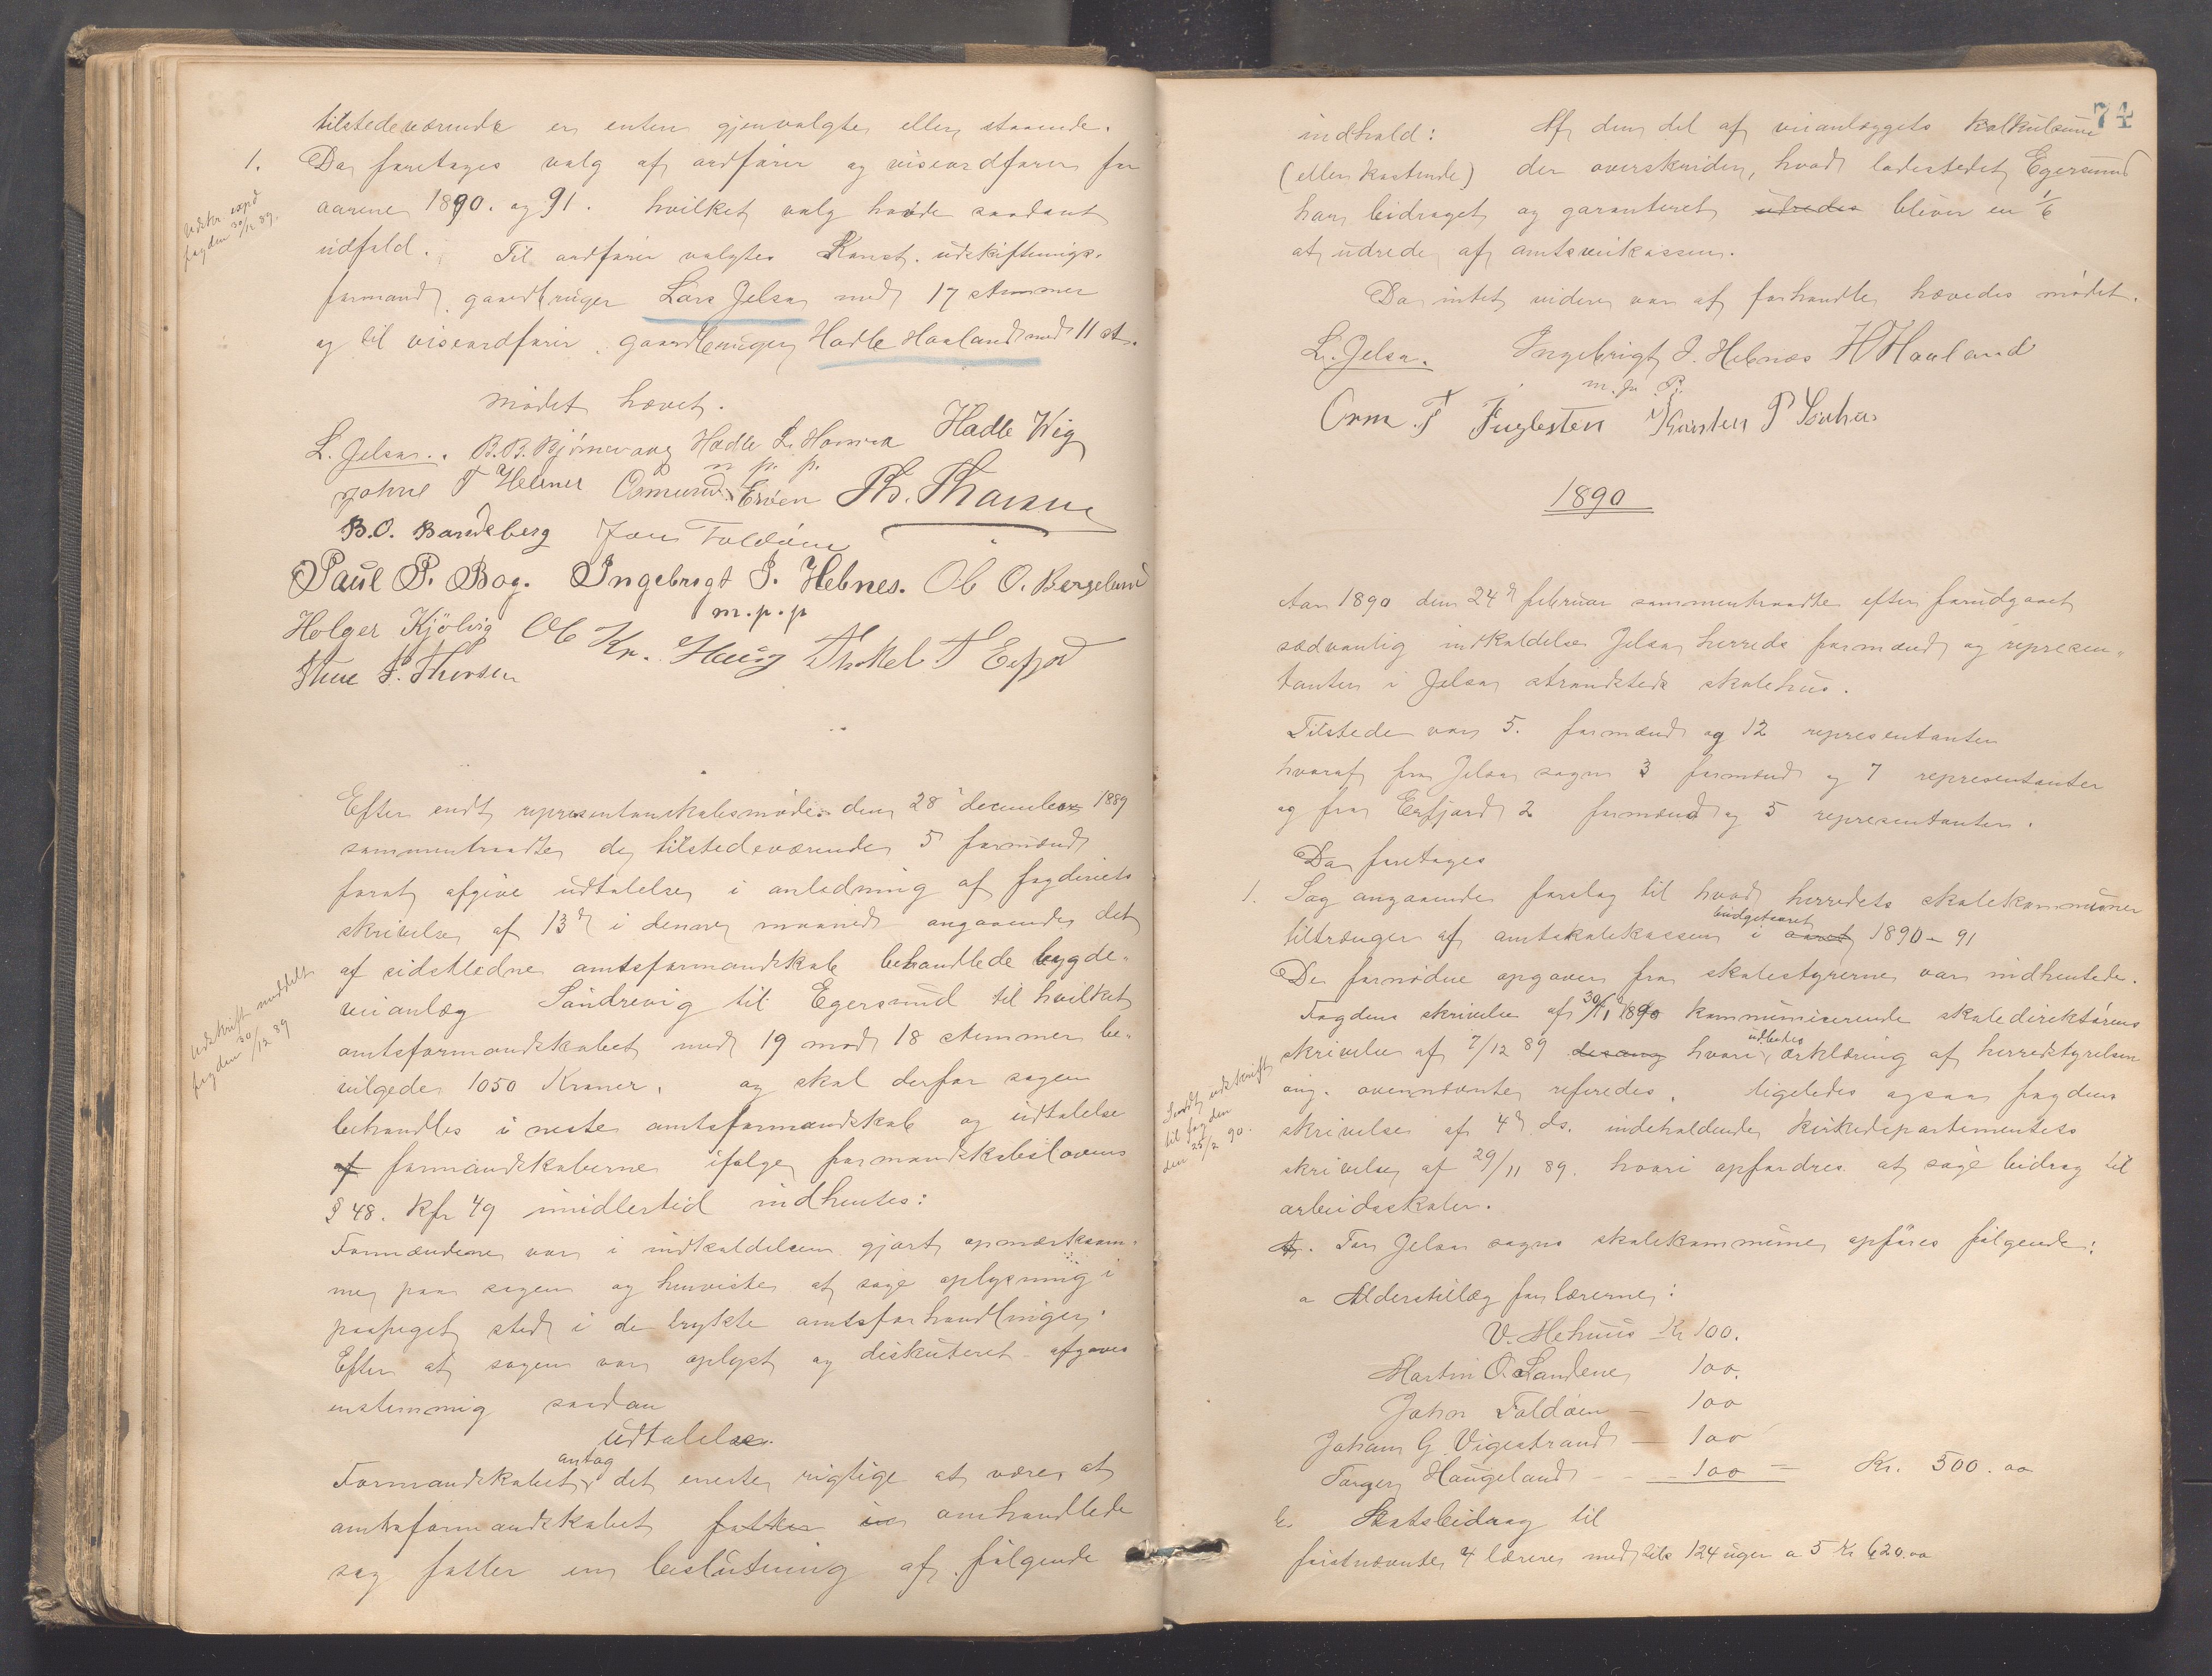 tilstedeværende er enten gjenvalgte eller staaende.
1. Da foretages valg af ordfører og viseordfører for
aarene 1890. og 91. hvilket valg havde saadant
udfald. Til ordfører valgtes Konst. udskiftnings-
formand, gaardbruger Lars Jelsa med 17 stemmer
og til viseordfører gaardbruger Hadle Haaland med 11 st.
Udskr. expd
fogden 30/12 89.
Mødet hævet.
L. Jelsa. B.B. Bjørnevaag Hadle L. Hamra Hadle Wig
m. p. p.
Johne T Hebnes Osmund Erøen Th. Tharsen
B.O. Barkeberg Jon Foldøen
Paul P. Bog. Ingebrigt J. Hebnes. Ob O. Bergelund
m.p.p
Holger Kjölvig Ob Kr. Haug Thokel T Erfjord
Sture P. Thorsen
Efter endt representantskabsmøde den 28 december 1889
sammentraadte de tilstedeværende 5 formænd
forat afgive udtalelse i anledning af fogderiets
skrivelse af 13de i denne maaned angaaende det
af sidstledne amtsformandskab behandlede bygde-
veianlæg Sandrevig til Egersund til hvilket
amtsformandskabet med 19 mod 18 stemmer be-
vilgede 1050 Kroner. og skal derfor sagen
behandles i neste amtsformandskab og udtalelse
af formandskaberne ifølge formandskabslovens
§ 48. kfr 49 imidlertid indhentes:
Udskrift meddelt
fogden 30/12 89
Formændene var i indkaldelsen gjort opmærksom-
me paa sagen og henviste at søge oplysning i
paapeget sted i de trykte amtsforhandlinger.
Efter at sagen var oplyst og diskuteret afgaves
enstemmig saadan
udtalelse.
antog
Formandskabet det eneste rigtige at være, at
amtsformandskabet fatter i omhandlede
sag fatter en beslutning af følgende
74
indhold: Af den del af veianlæggets kalkulsum
(eller kostende) der overskrider, hvad ladestedet Egersund
har bidraget og garanteret udredes bliver en 1/6
at udrede af amtsveikassen.
Da intet videre var at forhandle hævedes mødet.
L. Jelsa. Ingebrigt J. Hebnes H Haaland
m. p. P.
Orm. T Fuglesten Karsten P
1890
Aar 1890 den 24de februar sammentraadte efter forudgaaet
sædvanlig indkaldelse Jelsa herreds formænd og represen-
tanter i Jelsa strandsteds skolehus.
Tilstede var 5. formænd og 12 representanter
hvoraf fra Jelsa sogn 3 formænd og 7 representanter
og fra Erfjord 2 formænd og 5 representanter.
Da foretages
1. Sag angaaende forslag til hvad herredets skolekommuner
budgetaaret
tiltrænger af amtskolekassen i aaret 1890-91
De fornødne opgaver fra skolestyrerne var indhentede.
Fogdens skrivelse af 30/1 1890 kommuniserende skoledirektørens
udbedes
skrivelse af 7/12 89 desang hvori erklæring af herredstyrelsen
ang. ovennævnte refereredes, ligeledes ogsaa fogdens
skrivelse af 4de ds. indeholdende kirkedepartementets
skrivelse af 29/11 89. hvori opfordres at søge bidrag til
arbeidsskoler.
Sendt udskrift
til fogden
den 25/2 90.
A. For Jelsa sogns skolekommune opføres følgende:
a Alderstillæg for lærerne:
V. Mehuus Kr 100.
Martin O. Sandene 100.
John Foldøen — 100
Johan G. Vigestrand — 100
Torger Haugeland — 100 — Kr. 500.00
b. Statsbidrag til
føistnævnte 4 lærere med tils 124 uger a 5 Kr 620.00